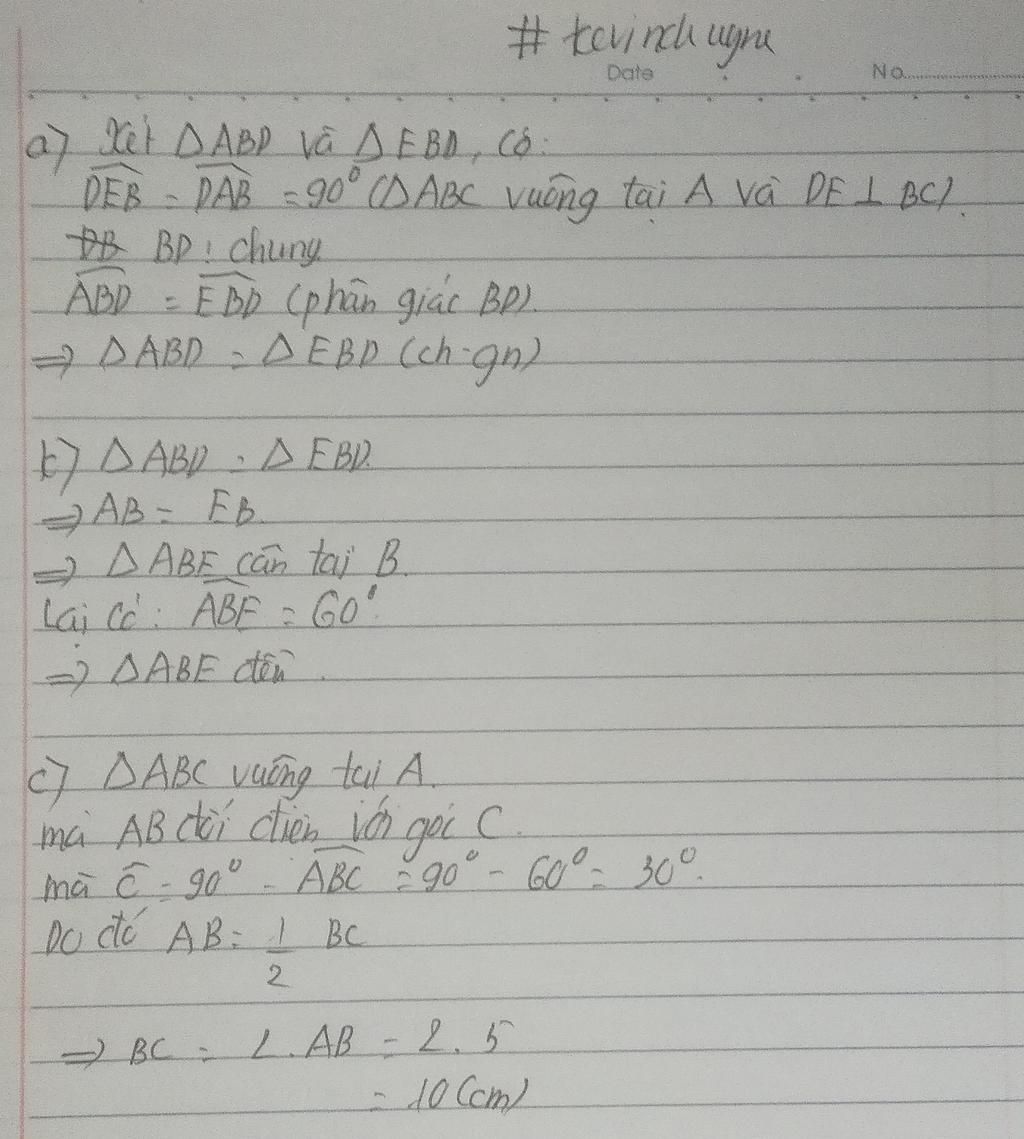 Date No.
a) Xét Δ ABD và Δ EBD, có:
DEB = DAB = 90° (Δ ABC vuông tại A và DE ⊥ BC).
BD: chung
ABD = EBD (phân giác BD).
=> Δ ABD = Δ EBD (ch-gn)
b) Δ ABD = Δ EBD.
=> AB = EB.
=> Δ ABE cân tại B.
Lại có: ABE = 60°.
=> Δ ABE đều.
c) Δ ABC vuông tại A.
mà AB đối diện với góc C.
mà Ĉ = 90° - ABC = 90° - 60° = 30°.
Do đó AB = 1/2 BC
=> BC = 2. AB = 2. 5
= 10 (cm)